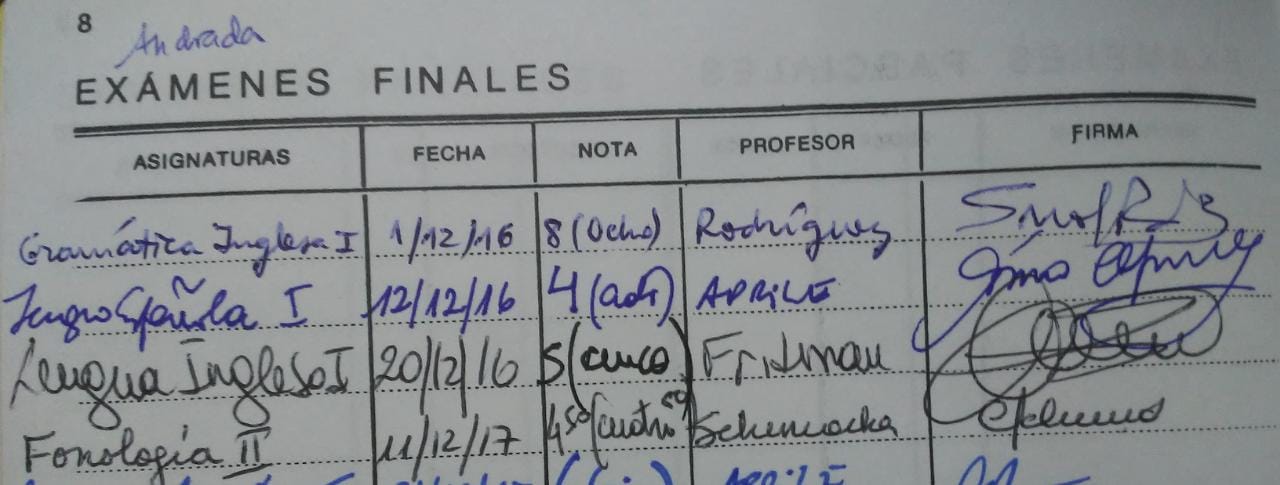 8
Andrada
EXÁMENES FINALES
ASIGNATURAS FECHA NOTA PROFESOR FIRMA
Gramática Inglesa I 1/12/16 8 (Ocho) Rodríguez
Lengua Española I 12/12/16 4 APRILE
Lengua Inglesa I 20/12/16 5 (cinco) Fridman
Fonología II 11/12/17 4,50 (cuatro 50)
APRILE